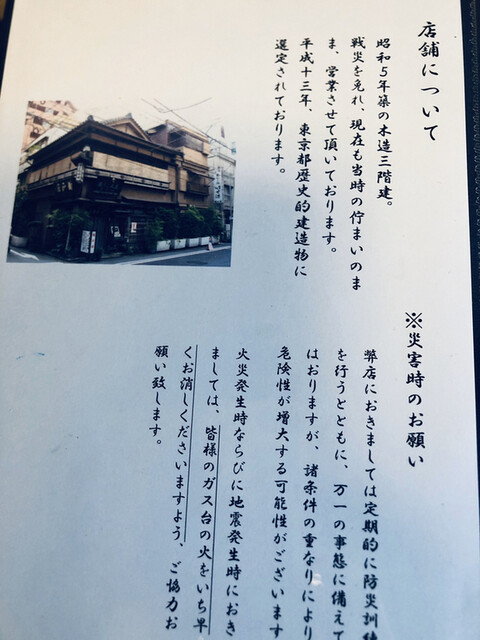 店舗について
昭和5年築の木造三階建。
戦災を免れ、現在も当時の佇まいのま
ま、営業させて頂いております。
平成十三年、東京都歴史的建造物に
選定されております。
※災害時のお願い
弊店におきましては定期的に防災訓練
を行うとともに、万一の事態に備えて
はおりますが、諸条件の重なりにより
危険性が増大する可能性がございます
火災発生時ならびに地震発生時におき
ましては、皆様のガス台の火をいち早
くお消しくださいますよう、ご協力お
願い致します。